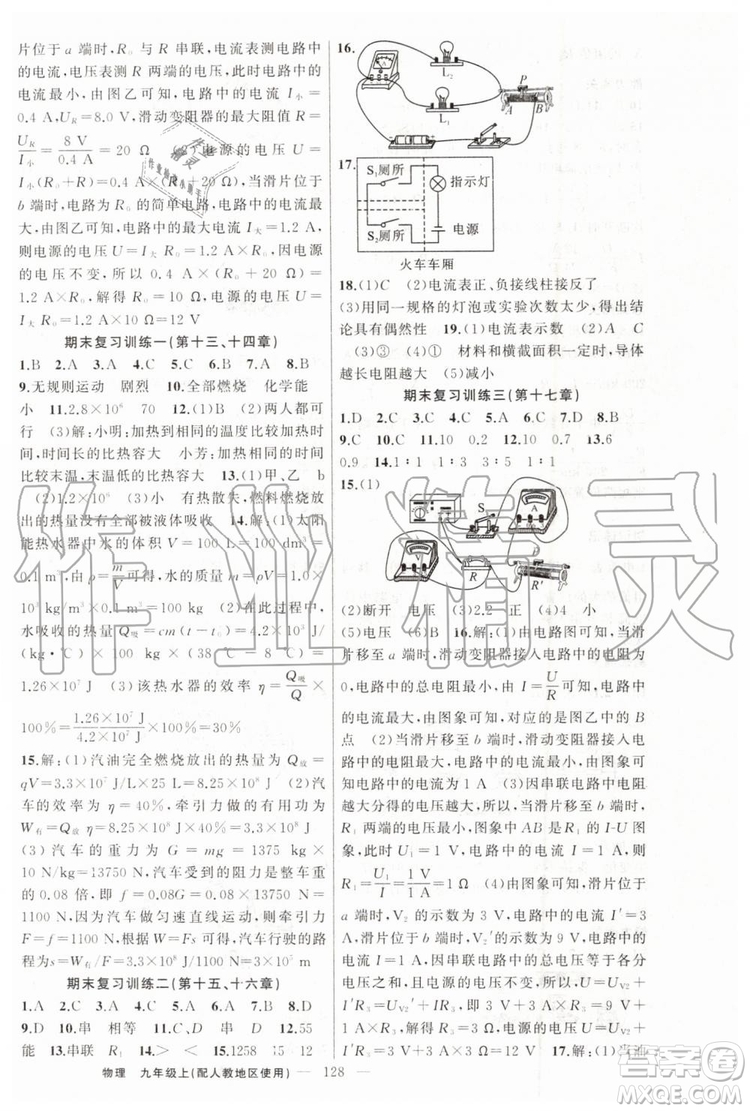 滑片位于 a 端时，R₀ 与 R 串联，电流表测电路中
的电流，电压表测 R 两端的电压，此时电路中的
电流最小，由图乙可知，电路中的最小电流 I小=
0.4 A，UR=8.0 V，滑动变阻器的最大阻值 R=
UR/I小=8 V/0.4 A=20 Ω
电源的电压 U=
I小(R₀+R)=0.4 A×(R₀+20 Ω)，当滑片位于
b 端时，电路为 R₀ 的简单电路，电路中的电流最
大，由图乙可知，电路中的最大电流 I大=1.2 A，
则电源的电压 U=I大R₀=1.2 A×R₀，因电源
的电压不变，所以，0.4 A×(R₀+20 Ω)=
1.2 A×R₀，解得 R₀=10 Ω，电源的电压 U=
1.2 A×10 Ω=12 V
期末复习训练一(第十三、十四章)
1.B 2.A 3.A 4.C 5.C 6.D 7.A 8.B
9.无规则运动 剧烈 10.全部燃烧 化学能
小 11.2.8×10⁶ 70 12.(2)两人都可
行 (3)解：小明：加热到相同的温度需要的加
热时间长的比热容大 小芳：加热相同的时间
比较末温，末温低的比热容大 13.(1)甲、乙 b
图 (2)1.2×10⁴ 小 有热散失，燃料燃烧放
出的热量没有全部被液体吸收 14.解：(1)太阳
能热水器中水的体积 V=100 L=100 dm³=
0.1 m³，由 ρ=m/V 可得，水的质量 m=ρV=1.0×
10³ kg/m³×0.1 m³=100 kg (2)在此过程中，
水吸收的热量 Q吸=cm(t-t₀)=4.2×10³ J/
(kg·℃)
1.26×10⁷ J (3)该热水器的效率 η=Q吸/Q×
100%=1.26×10⁷ J/4.2×10⁷ J×100%=30%
15.解：(1)汽油完全燃烧放出的热量为 Q放=
qV=3.3×10⁷ J/L×25 L=8.25×10⁸ J (2)汽
车的效率为 η=40%，牵引力做的有用功为
W有=Q放η=8.25×10⁸ J×40%=3.3×10⁸ J
(3)汽车的重力为 G=mg=1375 kg×
10 N/kg=13750 N，阻力为 f=0.08×13750 N=
1100 N，因为汽车做匀速直线运动，所以牵引力
F=f=1100 N，由 W=Fs 可得，汽车行驶的路
程为 s=W有/F=3.3×10⁸ J/1100 N=3×10⁵ m
期末复习训练二(第十五、十六章)
1.A 2.B 3.C 4.C 5.A 6.A 7.B 8.D
9.D 10.串 相等 11.C、D 串 D 12.55
能 13.串联 R₁ 14.>
15.1258 125 5∶1
16.
L₂
L₁
P
A B
17.
S₁厕所
指示灯
S₂厕所
电源
火车车厢
18.(1)C (2)电流表正、负接线柱接反了
(3)用同一规格的灯泡或实验次数太少，得出结
论具有偶然性 19.(1)电流表示数 (2)A C
(3)③ (4)① 材料和横截面积相同时，导体
越长电阻越大 (5)减小
期末复习训练三(第十七章)
1.D 2.C 3.C 4.C 5.C 6.C 7.D 8.B
9.C 10.C 11.0.20 0～20 12.0.2 13.6
0.9 14.1∶1 1∶3 3∶5 1∶1
15.(1)
S
A
V
R
R′
(2)断开 电压 (3)2.2 正 (4)4 小
(5)电压 (6)B 16.解：(1)由电路图可知，当滑
片移至 a 端时，滑动变阻器接入电路中的电阻为
0，电路中的总电阻最小，由 I=U/R 可知，电路中
的电流最大，由图象可知，对应的是图乙中的 B
点 (2)当滑片移至 b 端时，滑动变阻器接入
电路中的电阻最大，电路中的电流最小，由图象
可知，最小电流为 1 A (3)因串联电路中电阻
越大分得的电压越大，所以，滑片位于 b 端时，
R₁ 两端的电压最小，图象中 AB 是 R₁ 的 I-U 图
象，此时 U₁=1 V，电路中的电流 I=1 A，则
R₁=U₁/I=1 V/1 A=1 Ω (4)由图象可知，滑片位于
a 端时，V₂ 的示数为 3 V，电路中的电流 I′=3 A，
滑片位于 b 端时，V₂ 的示数为 5 V，电路中的电
流为 1 A，因串联电路中总电压等于各分
电压之和，且电源的电压不变，所以，U=UV2+
I′R₃=UV2′+IR₃，即 3 V+3 A×R₃=5 V+
1 A×R₃，解得：R₃=1 Ω，电源的电压 U=UV2+
I′R₃=3 V+3 A×1 Ω=6 V 17.解：(1)当油
物理 九年级上(配人教地区使用) — 128 —
作业精灵